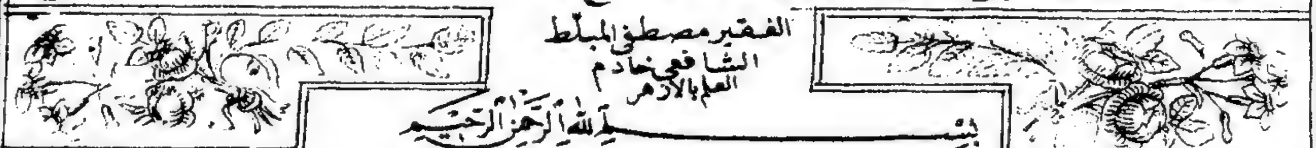 الفقير مصطفى المبلط
الشافعي خادم
العلم بالازهر
بسم الله الرحمن الرحيم